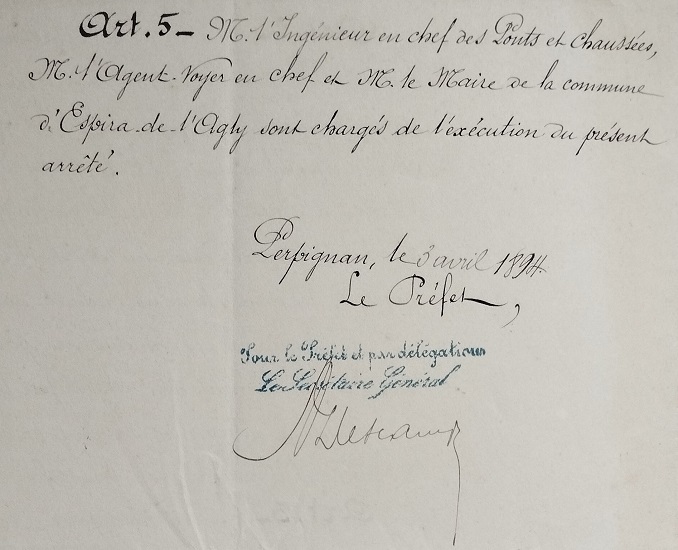 Art. 5 _ M. l'Ingénieur en chef des Ponts et Chaussées,
M. l'Agent-Voyer en chef et M. le Maire de la commune
d'Espira-de-l'Agly sont chargés de l'exécution du présent
arrêté.
Perpignan, le 3 avril 1894.
Le Préfet,
Pour le Préfet et par délégation
Le Secrétaire Général